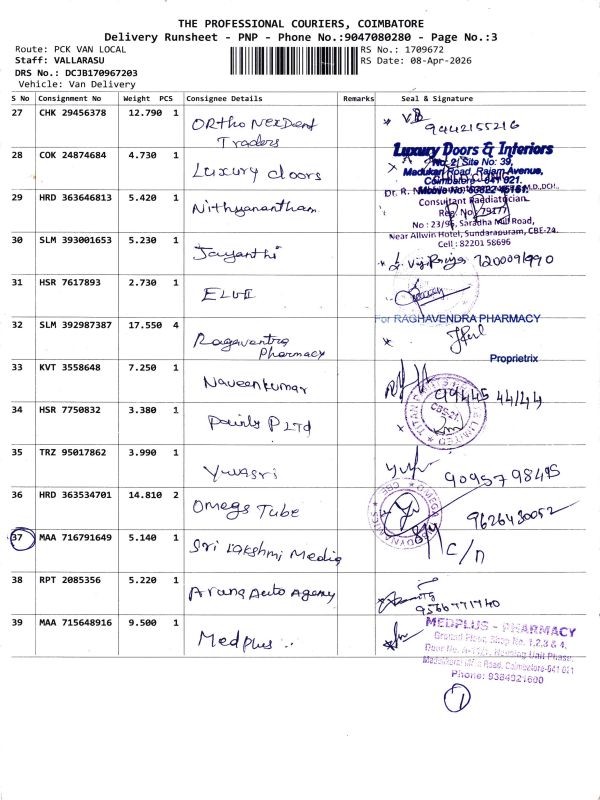 THE PROFESSIONAL COURIERS, COIMBATORE
Delivery Runsheet - PNP - Phone No.:9047080280 - Page No.:3
Route: PCK VAN LOCAL
RS No.: 1709672
Staff: VALLARASU
RS Date: 08-Apr-2026
DRS No.: DCJB170967203
Vehicle: Van Delivery
S No Consignment No Weight PCS Consignee Details Remarks Seal & Signature
27 CHK 29456378 12.790 1 Ortho NexDent Traders 9442155216
28 COK 24874684 4.730 1 Luxury doors
Luxury Doors & Interiors
No. 2, Site No: 39,
Madukari Road, Rajam Avenue,
Coimbatore - 641 021.
29 HRD 363646813 5.420 1 Nithyanantham
Dr. R. M.D,DCH.,
Consultant Paediatrician
Reg. No: 79177
No : 23/96, Saradha Mill Road,
Near Allwin Hotel, Sundarapuram, CBE-24.
Cell : 82201 58696
30 SLM 393001653 5.230 1 Jayanthi
31 HSR 7617893 2.730 1
32 SLM 392987387 17.550 4 Ragavantra Pharmacy
For RAGHAVENDRA PHARMACY
Proprietrix
33 KVT 3558648 7.250 1 Naveenkumar 99445 44144
34 HSR 7750832 3.380 1 Paints P LTd
35 TRZ 95017862 3.990 1 Yuvasri 9095798495
36 HRD 363534701 14.810 2 Omega Tube 9626430052
37 MAA 716791649 5.140 1 Sri Lakshmi Media C/n
38 RPT 2085356 5.220 1 Aruna Auto Agency 9566771740
39 MAA 715648916 9.500 1 Medplus
MEDPLUS - PHARMACY
Ground Floor, Shop No. 1,2,3 & 4,
Housing Unit Phase,
Road, Coimbatore-641 021
Phone: 9384921600
1